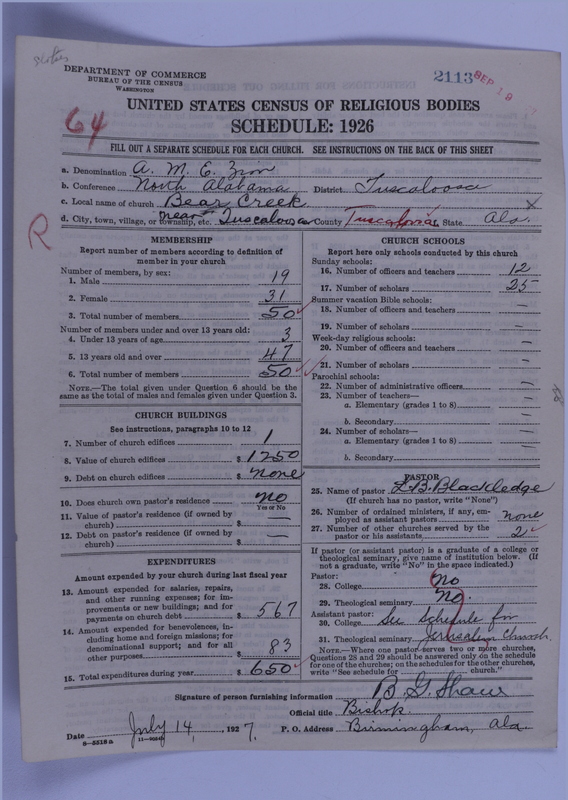 DEPARTMENT OF COMMERCE
BUREAU OF THE CENSUS
WASHINGTON
2113
SEP 19
64
UNITED STATES CENSUS OF RELIGIOUS BODIES
SCHEDULE: 1926
FILL OUT A SEPARATE SCHEDULE FOR EACH CHURCH. SEE INSTRUCTIONS ON THE BACK OF THIS SHEET
a. Denomination A. M. E. Zion
b. Conference North Alabama District Tuscaloosa
c. Local name of church Bear Creek
d. City, town, village, or township, etc. near Tuscaloosa County Tuscaloosa State Ala.
R
MEMBERSHIP
Report number of members according to definition of
member in your church
Number of members, by sex:
1. Male 19
2. Female 31
3. Total number of members 50
Number of members under and over 13 years old:
4. Under 13 years of age 3
5. 13 years old and over 47
6. Total number of members 50
NOTE.—The total given under Question 6 should be
same as the total of males and females given under Question 3.
CHURCH BUILDINGS
See instructions, paragraphs 10 to 12
7. Number of church edifices 1
8. Value of church edifices $ 1250
9. Debt on church edifices $ none
10. Does church own pastor's residence no
Yes or No
11. Value of pastor's residence (if owned by
church) $ —
12. Debt on pastor's residence (if owned by
church) $ —
EXPENDITURES
Amount expended by your church during last fiscal year
13. Amount expended for salaries, repairs,
and other running expenses; for im-
provements or new buildings; and for
payments on church debt $ 567
14. Amount expended for benevolences, in-
cluding home and foreign missions; for
denominational support; and for all
other purposes $ 83
15. Total expenditures during year $ 650
CHURCH SCHOOLS
Report here only schools conducted by this church
Sunday schools:
16. Number of officers and teachers 12
17. Number of scholars 25
Summer vacation Bible schools:
18. Number of officers and teachers —
19. Number of scholars —
Week-day religious schools:
20. Number of officers and teachers —
21. Number of scholars —
Parochial schools:
22. Number of administrative officers —
23. Number of teachers—
a. Elementary (grades 1 to 8) —
b. Secondary —
24. Number of scholars—
a. Elementary (grades 1 to 8) —
b. Secondary —
PASTOR
25. Name of pastor L. B. Blackledge
(If church has no pastor, write "None")
26. Number of ordained ministers, if any, em-
ployed as assistant pastors none
27. Number of other churches served by the
pastor or his assistants 2
If pastor (or assistant pastor) is a graduate of a college or
theological seminary, give name of institution below. (If
not a graduate, write "No" in the space indicated.)
Pastor:
28. College no
29. Theological seminary no.
Assistant pastor:
30. College See Schedule for
31. Theological seminary Jerusalem Church
NOTE.—Where one pastor serves two or more churches,
Questions 28 and 29 should be answered only on the schedule
for one of the churches; on the schedules for the other churches,
write "See schedule for church."
Signature of person furnishing information B G Shaw
Official title Bishop.
Date July 14, 1927. P. O. Address Birmingham, Ala
8—5518a